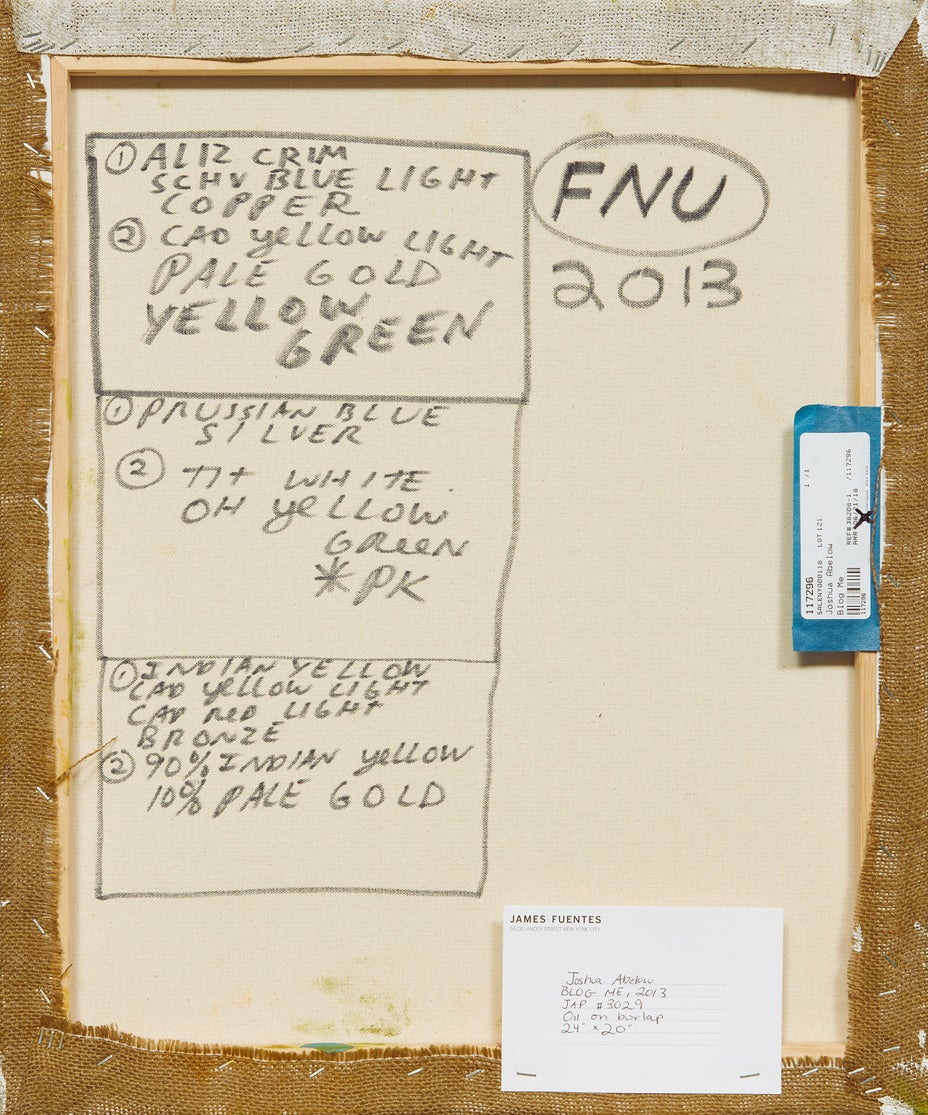 ① ALIZ CRIM
SCHV BLUE LIGHT
COPPER
② CAD YELLOW LIGHT
PALE GOLD
YELLOW
GREEN
① PRUSSIAN BLUE
SILVER
② TIT WHITE
OH YELLOW
GREEN
*PK
① INDIAN YELLOW
CAD YELLOW LIGHT
CAD RED LIGHT
BRONZE
② 90% INDIAN YELLOW
10% PALE GOLD
FNU
2013
117296
SALENY000118 LOT 121 1 /1
Joshua Abelow
Blog Me
REF# 38208-1 /117296
117296
X
JAMES FUENTES
55 DELANCEY STREET NEW YORK CITY
Joshua Abelow
BLOG ME, 2013
JAP #3029
Oil on burlap
24" x 20"